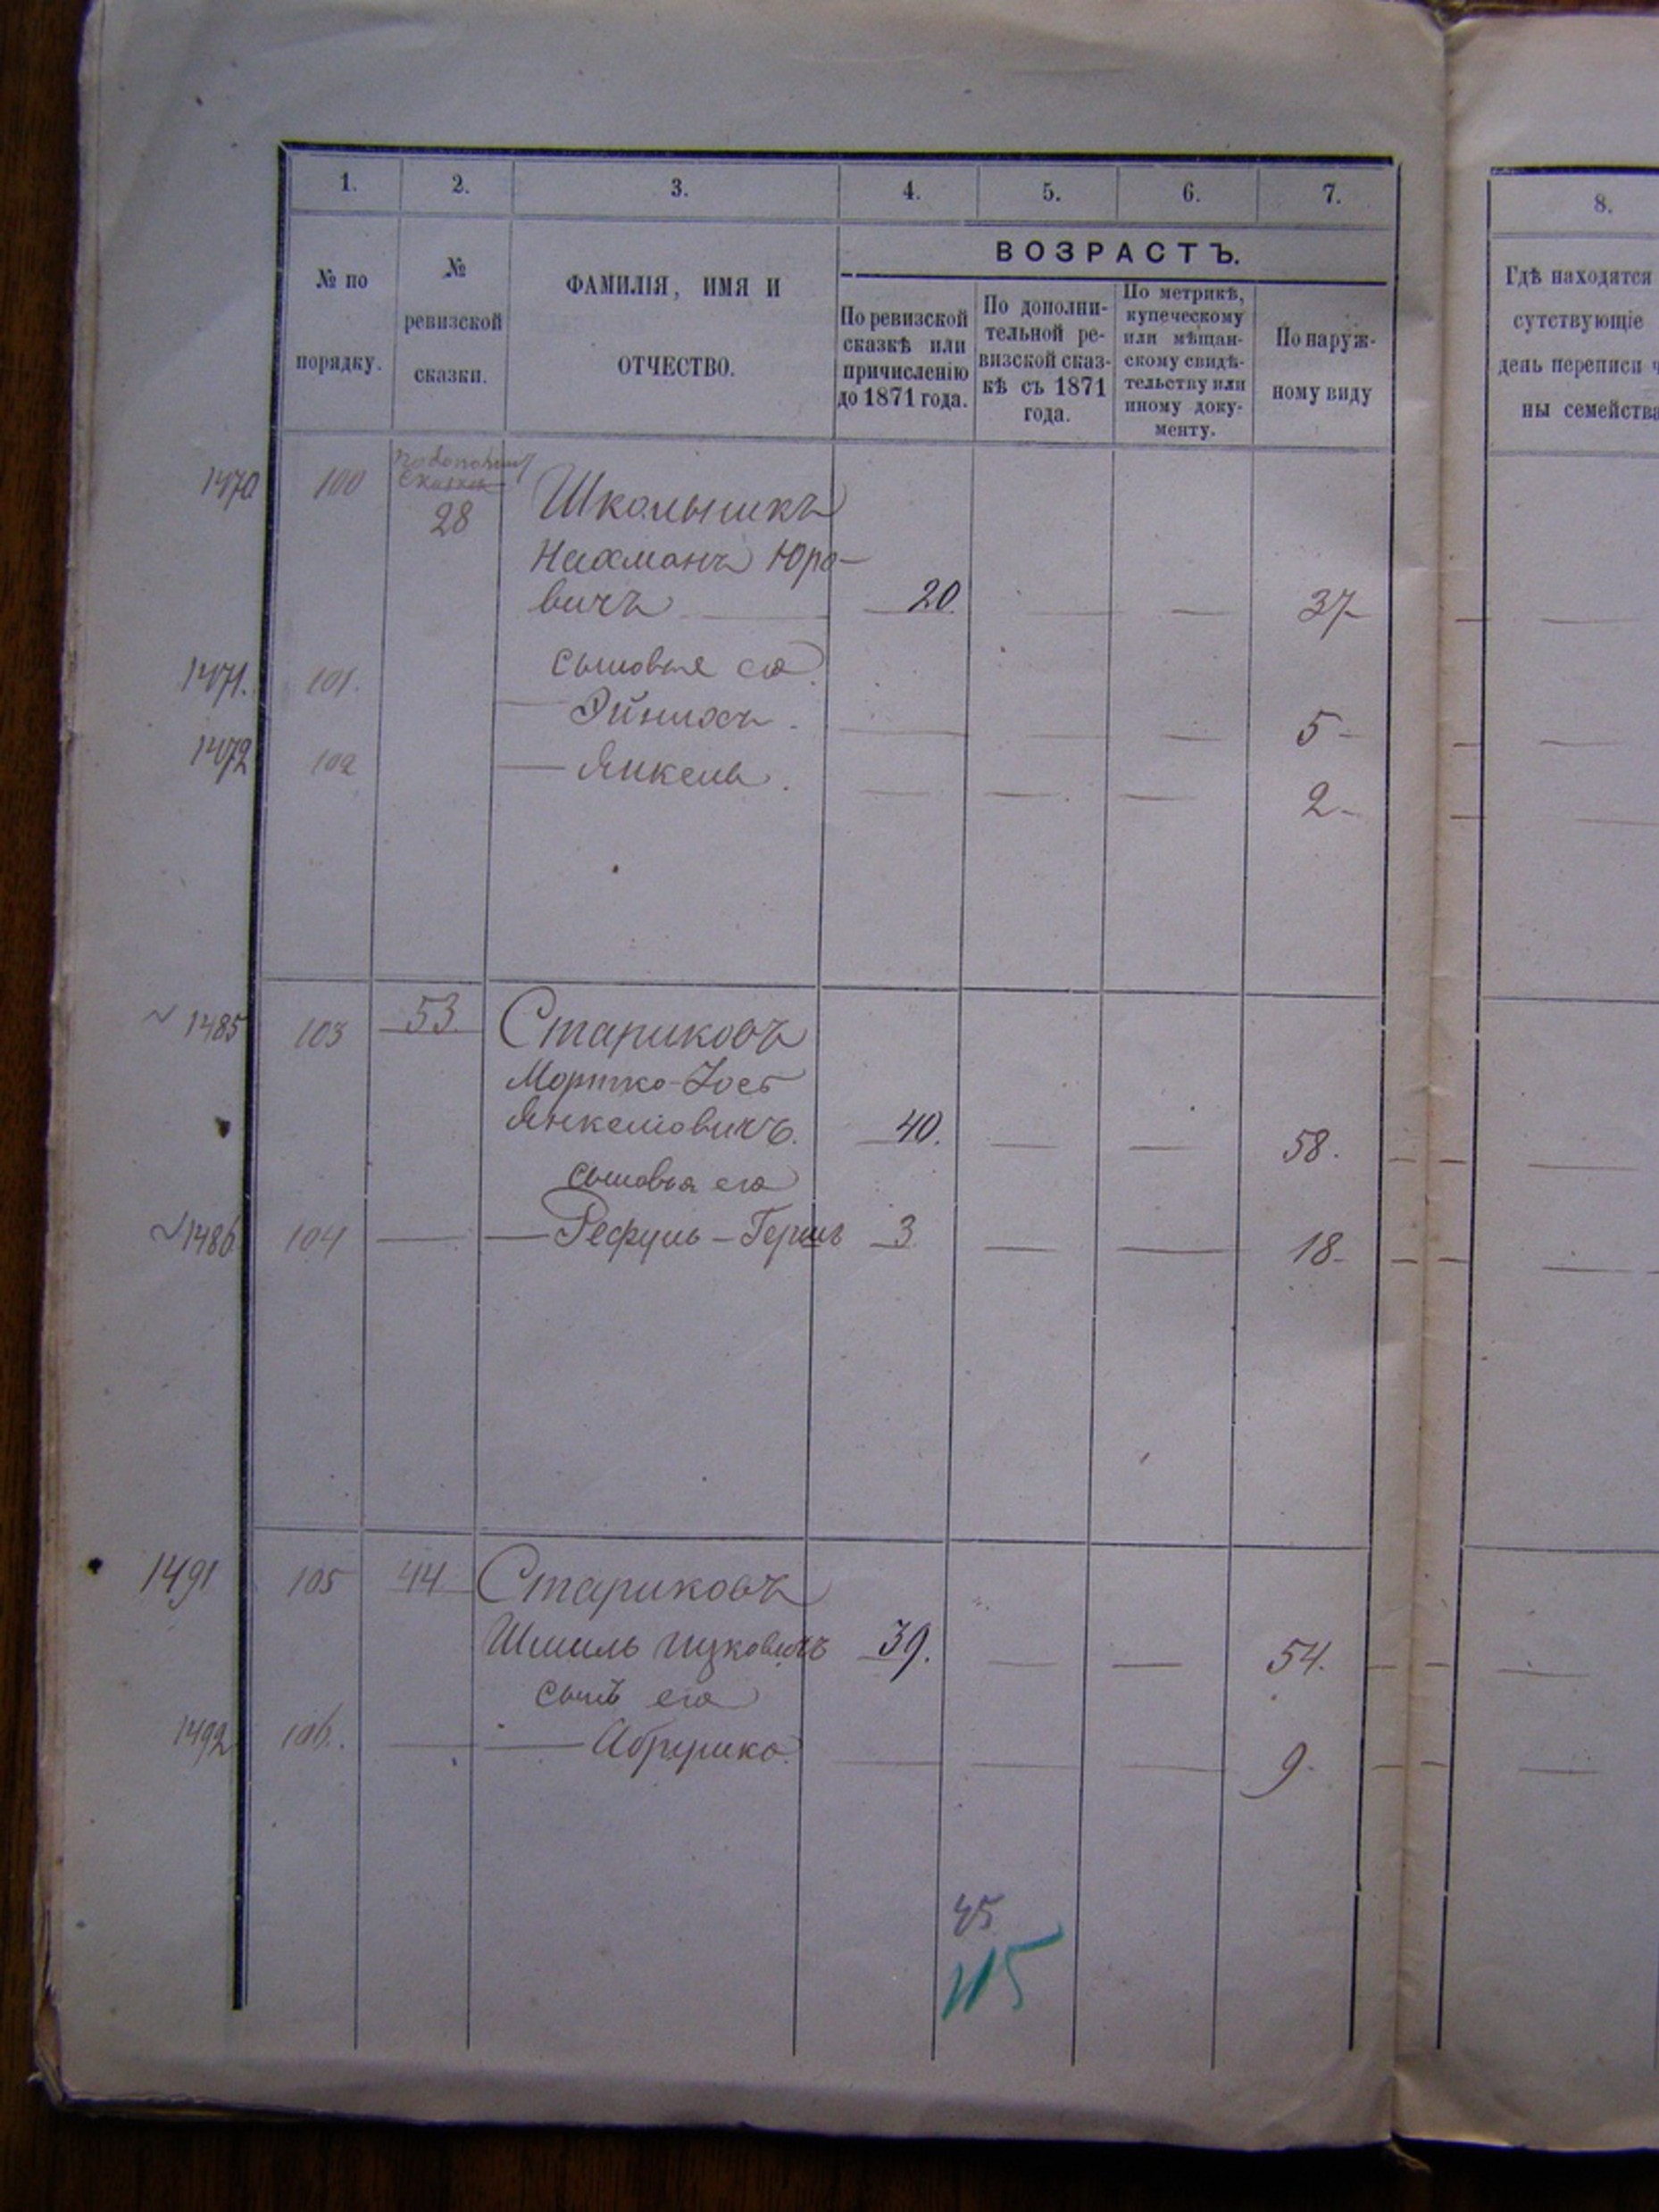 1. 2. 3. 4. 5. 6. 7. 8.
№ по порядку.
№ ревизской сказки.
ФАМИЛІЯ, ИМЯ И ОТЧЕСТВО.
ВОЗРАСТЪ.
По ревизской сказкѣ или причисленію до 1871 года.
По дополнительной ревизской сказкѣ съ 1871 года.
По метрикѣ, купеческому или мѣщанскому свидѣтельству или иному документу.
По наружному виду
Гдѣ находятся
сутствующіе
день переписи ч
ны семейства
1470 100 28 Школьникъ
Нахманъ Юро-
вичъ 20. 37
1471. 101. сыновья его
Эйнихъ. 5
1472 102 Янкель. 2
1485 103 53. Стариковъ
Мортко-Іось
Янкелiовичъ. 40. 58.
сыновья его
1486 104 Рефуль-Гершъ 3 18
1491 105 44 Стариковъ
Шмиль Ицковичъ 39. 54.
сынъ его
1492 106. Абрумко. 9
45
115